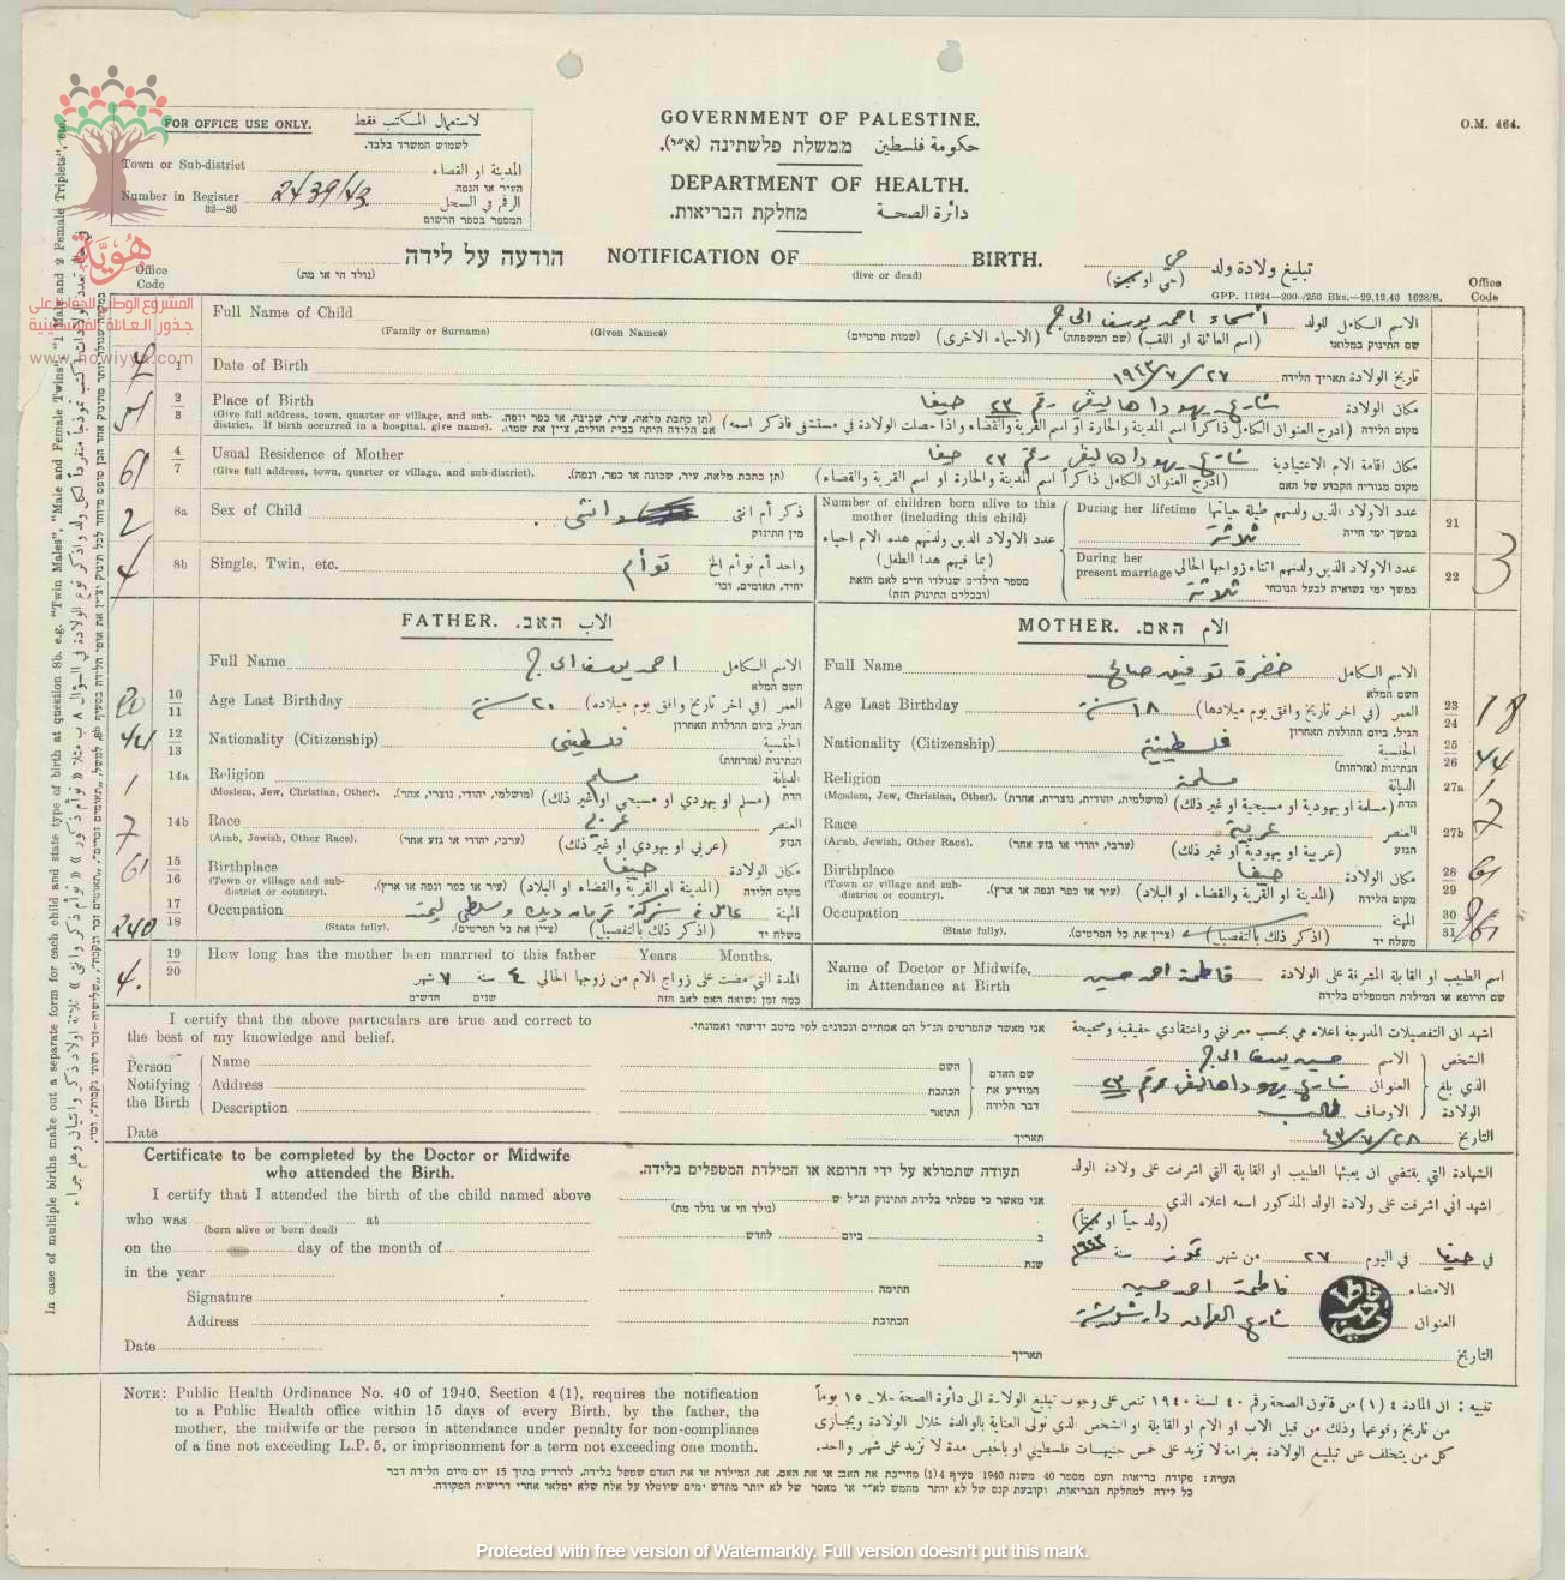 GOVERNMENT OF PALESTINE.
حكومة فلسطين ממשלת פלשתינה (א״י).
DEPARTMENT OF HEALTH.
دائرة الصحة מחלקת הבריאות.
O.M. 464.
FOR OFFICE USE ONLY. لاستعمال المكتب فقط
לשמוש המשרד בלבד.
Town or Sub-district المدينة او القضاء
העיר או הנפה
Number in Register 2/39/43 الرقم في السجل
32—36 המספר בספר הרשום
هُوِيَّة
المشروع الوطني للحفاظ على
جذور العائلة الفلسطينية
www.howiyya.com
הודעה על לידה NOTIFICATION OF BIRTH. تبليغ ولادة ولد حي
(נולד חי או מת) (live or dead) (حي او ميت)
GPP. 11824—200/250 Bks.—29.12.40 1628/S.
Office Code Office Code
Full Name of Child أسماء احمد يوسف الحاج الاسم الكامل للولد
(Family or Surname) (Given Names) (שמות פרטיים) (الاسماء الاخرى) (שם המשפחה) (اسم العائلة او اللقب) שם התינוק במלואו
1 Date of Birth ٢٧/٧/١٩٤٣ تاريخ الولادة תאריך הלידה
2/3 Place of Birth شارع يهودا هاليفي رقم ٢٣ حيفا مكان الولادة
(Give full address, town, quarter or village, and sub-district. If birth occurred in a hospital, give name). (תן כתבת מלאה, עיר, שכונה, או כפר ונפה. אם הלידה היתה בבית חולים, ציין את שמו). (ادرج العنوان الكامل ذاكراً اسم المدينة والحارة او اسم القرية والقضاء واذا حصلت الولادة في مستشفى فاذكر اسمه) מקום הלידה
4/7 Usual Residence of Mother شارع يهودا هاليفي رقم ٢٣ حيفا مكان اقامة الام الاعتيادية
(Give full address, town, quarter or village, and sub-district). (תן כתבת מלאה, עיר, שכונה או כפר, ונפה). (ادرج العنوان الكامل ذاكراً اسم المدينة والحارة او اسم القرية والقضاء) מקום מגוריה הקבוע של האם
8a Sex of Child انثى ذكر أم انثى
מין התינוק
8b Single, Twin, etc. توأم واحد أم توأم الخ
יחיד, תאומים, וכו׳
Number of children born alive to this mother (including this child)
عدد الاولاد الذين ولدتهم هذه الام احياء (بما فيهم هذا الطفل)
מספר הילדים שנולדו חיים לאם הזאת (ובכללים התינוק הזה)
During her lifetime عدد الاولاد الذين ولدتهم طيلة حياتها 21
ثلاثة במשך ימי חייה
During her present marriage عدد الاولاد الذين ولدتهم اثناء زواجها الحالي 22 3
ثلاثة במשך ימי נשואיה לבעל הנוכחי
FATHER. الاب האב.
Full Name احمد يوسف الحاج الاسم الكامل
השם המלא
20 10/11 Age Last Birthday ٢٠ سنة العمر (في اخر تاريخ وافق يوم ميلاده)
הגיל, ביום ההולדת האחרון
44 12/13 Nationality (Citizenship) فلسطيني الجنسية
הנתינות (אזרחות)
1 14a Religion مسلم الديانة
(Moslem, Jew, Christian, Other). (מושלמי, יהודי, נוצרי, אחר). (مسلم او يهودي او مسيحي او غير ذلك) הדת
7 14b Race عربي العنصر
(Arab, Jewish, Other Race). (ערבי, יהודי או גזע אחר) (عربي او يهودي او غير ذلك) הגזע
61 15/16 Birthplace حيفا مكان الولادة
(Town or village and sub-district or country). (עיר או כפר ונפה או ארץ). (المدينة او القرية والقضاء او البلاد) מקום הלידה
240 17/18 Occupation عامل في شركة المهنة
(State fully). (ציין את כל הפרטים). (اذكر ذلك بالتفصيل) משלח יד
4. 19/20 How long has the mother been married to this father Years Months.
المدة التي مضت على زواج الام من زوجها الحالي ٤ سنة ٧ شهر
כמה זמן נשואה האם לאב הזה שנים חדשים
MOTHER. الام האם.
Full Name خضرة توفيق صالح الاسم الكامل
השם המלא
Age Last Birthday ١٨ سنة العمر (في اخر تاريخ وافق يوم ميلادها) 23/24 18
הגיל, ביום ההולדת האחרון
Nationality (Citizenship) فلسطينية الجنسية 25/26 44
הנתינות (אזרחות)
Religion مسلمة الديانة 27a 1
(Moslem, Jew, Christian, Other). (מושלמית, יהודית, נוצרית, אחרת). (مسلمة او يهودية او مسيحية او غير ذلك) הדת
Race عربية العنصر 27b 7
(Arab, Jewish, Other Race). (ערבי, יהודי או גזע אחר) (عربية او يهودية او غير ذلك) הגזע
Birthplace حيفا مكان الولادة 28/29 61
(Town or village and sub-district or country). (עיר או כפר ונפה או ארץ). (المدينة او القرية والقضاء او البلاد) מקום הלידה
Occupation المهنة 30/31
(State fully). (ציין את כל הפרטים). (اذكر ذلك بالتفصيل) משלח יד
Name of Doctor or Midwife, in Attendance at Birth فاطمة احمد حسين اسم الطبيب او القابلة المشرفة على الولادة
שם הרופא או המילדת המטפלים בלידה
I certify that the above particulars are true and correct to the best of my knowledge and belief.
אני מאשר שהפרטים הנ״ל הם אמתיים ונכונים לפי מיטב ידיעתי ואמונתי.
اشهد ان التفصيلات المدرجة اعلاه هي بحسب معرفتي واعتقادي حقيقية وصحيحة
Person Notifying the Birth Name השם שם האדם המודיע את דבר הלידה حسين يوسف الحاج الاسم الشخص الذي بلغ الولادة
Address הכתבת شارع يهودا هاليفي رقم ٢٣ العنوان
Description התואר الاوصاف
Date תאריך ٢٨/٧/٤٣ التاريخ
Certificate to be completed by the Doctor or Midwife who attended the Birth.
תעודה שתמולא על ידי הרופא או המילדת המטפלים בלידה.
الشهادة التي يقتضي ان يعبئها الطبيب او القابلة التي اشرفت على ولادة الولد
I certify that I attended the birth of the child named above
אני מאשר כי טפלתי בלידת התינוק הנ״ל ש
اشهد اني اشرفت على ولادة الولد المذكور اسمه اعلاه الذي
who was at
(born alive or born dead) (נולד חי או נולד מת) (ولد حياً او ميتاً)
on the day of the month of ב ביום לחדש
في حيفا في اليوم ٢٧ من شهر تموز سنة ١٩٤٣
in the year שנת
Signature חתימה الامضاء فاطمة احمد حسين
Address הכתובת العنوان شارع
Date תאריך التاريخ
NOTE: Public Health Ordinance No. 40 of 1940, Section 4(1), requires the notification
to a Public Health office within 15 days of every Birth, by the father, the
mother, the midwife or the person in attendance under penalty for non-compliance
of a fine not exceeding L.P. 5, or imprisonment for a term not exceeding one month.
تنبيه : ان المادة ٤ (١) من قانون الصحة رقم ٤٠ لسنة ١٩٤٠ تنص على وجوب تبليغ الولادة الى دائرة الصحة خلال ١٥ يوماً
من تاريخ وقوعها وذلك من قبل الاب او الام او القابلة او الشخص الذي تولى العناية بالوالدة خلال الولادة ويجازى
كل من يتخلف عن تبليغ الولادة بغرامة لا تزيد على خمس جنيهات فلسطيني او بالحبس مدة لا تزيد على شهر واحد.
הערה: פקודת בריאות העם מספר 40 משנת 1940 סעיף 4(1) מחייבת את האב או את האם, את המילדת או את האדם שטפל בלידה, להודיע בתוך 15 יום מיום הלידה דבר
כל לידה למחלקת הבריאות, וקובעת קנס של לא יותר מחמש לא״י או מאסר של לא יותר מחדש ימים שיוטלו על אלה שלא ימלאו אחרי דרישות הפקודה.
In case of multiple births make out a separate form for each child and state type of birth at question 8b, e.g. "Twin Males", "Male and Female Twins", "1 Male and 2 Female Triplets", etc.
Protected with free version of Watermarkly. Full version doesn't put this mark.